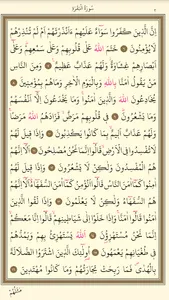 سُورَةُ الْبَقَرَةِ
اِنَّ الَّذٖينَ كَفَرُوا سَوَٓاءٌ عَلَيْهِمْ ءَاَنْذَرْتَهُمْ اَمْ لَمْ تُنْذِرْهُمْ
لَا يُؤْمِنُونَ خَتَمَ اللّٰهُ عَلٰى قُلُوبِهِمْ وَعَلٰى سَمْعِهِمْ وَعَلٰٓى
اَبْصَارِهِمْ غِشَاوَةٌ وَلَهُمْ عَذَابٌ عَظٖيمٌ وَمِنَ النَّاسِ
مَنْ يَقُولُ اٰمَنَّا بِاللّٰهِ وَبِالْيَوْمِ الْاٰخِرِ وَمَا هُمْ بِمُؤْمِنٖينَ
يُخَادِعُونَ اللّٰهَ وَالَّذٖينَ اٰمَنُوا وَمَا يَخْدَعُونَ اِلَّٓا اَنْفُسَهُمْ
وَمَا يَشْعُرُونَ فٖي قُلُوبِهِمْ مَرَضٌ فَزَادَهُمُ اللّٰهُ مَرَضًا
وَلَهُمْ عَذَابٌ اَلٖيمٌ بِمَا كَانُوا يَكْذِبُونَ وَاِذَا قٖيلَ لَهُمْ
لَا تُفْسِدُوا فِي الْاَرْضِ قَالُٓوا اِنَّمَا نَحْنُ مُصْلِحُونَ اَلَٓا اِنَّهُمْ
هُمُ الْمُفْسِدُونَ وَلٰكِنْ لَا يَشْعُرُونَ وَاِذَا قٖيلَ لَهُمْ
اٰمِنُوا كَمَٓا اٰمَنَ النَّاسُ قَالُٓوا اَنُؤْمِنُ كَمَٓا اٰمَنَ السُّفَهَٓاءُ اَلَٓا اِنَّهُمْ
هُمُ السُّفَهَٓاءُ وَلٰكِنْ لَا يَعْلَمُونَ وَاِذَا لَقُوا الَّذٖينَ
اٰمَنُوا قَالُٓوا اٰمَنَّا وَاِذَا خَلَوْا اِلٰى شَيَاطٖينِهِمْ قَالُٓوا اِنَّا مَعَكُمْ
اِنَّمَا نَحْنُ مُسْتَهْزِؤُنَ اَللّٰهُ يَسْتَهْزِئُ بِهِمْ وَيَمُدُّهُمْ
فٖي طُغْيَانِهِمْ يَعْمَهُونَ اُولٰٓئِكَ الَّذٖينَ اشْتَرَوُا الضَّلَالَةَ
بِالْهُدٰى فَمَا رَبِحَتْ تِجَارَتُهُمْ وَمَا كَانُوا مُهْتَدٖينَ
مَثَلُهُمْ